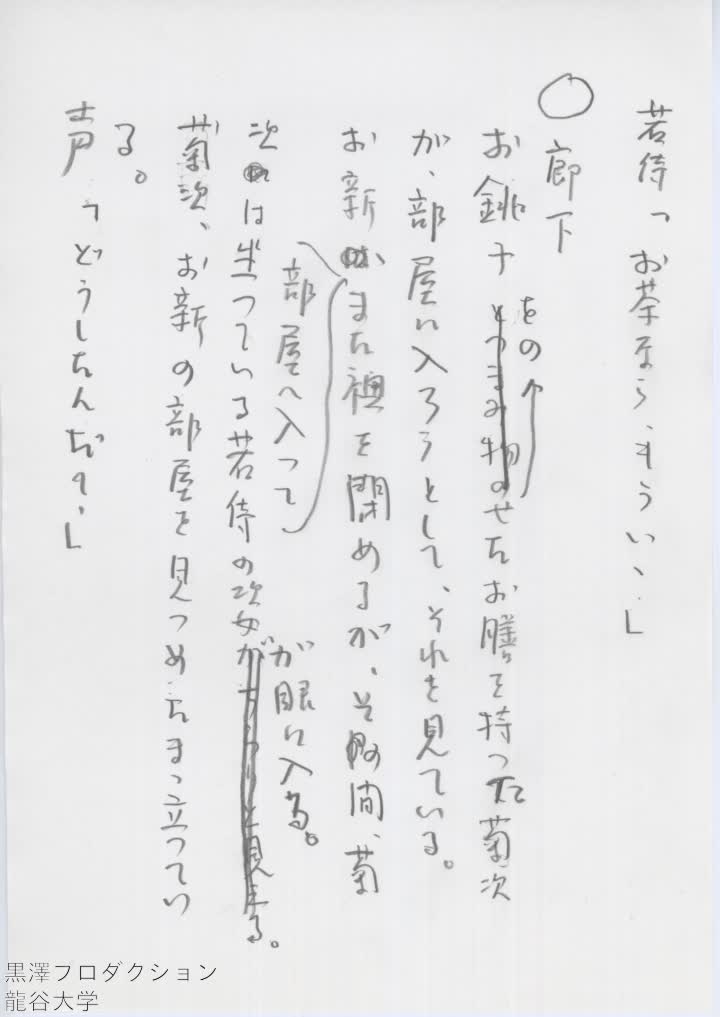 若侍「お茶なら、もういゝ」
○廊下
お銚子をのせたお膳を持った菊次
が、部屋に入ろうとして、それを見ている。
お新、部屋へ入って、また襖を閉めるが、その間、菊
次は坐っている若侍の次女が眼に入る。
菊次、お新の部屋を見つめたまゝ立ってい
る。
声「どうしたんだい」
黒澤プロダクション
龍谷大学